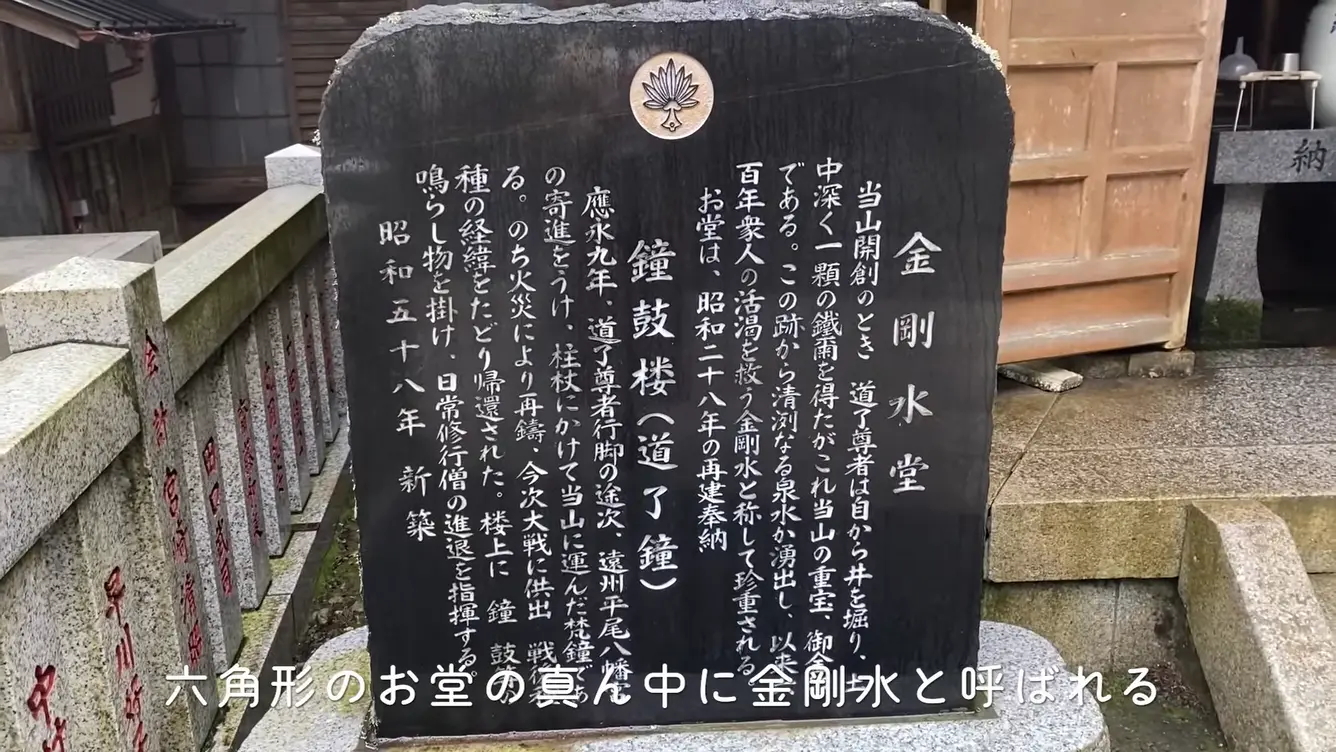 金剛水堂
当山開創のとき 道了尊者は自から井を掘り、土
中深く一顆の鐵印を得たがこれ当山の重宝、御金印
である。この跡から清冽なる泉水か湧出し、以来
百年衆人の活渇を救う金剛水と称して珍重される。
お堂は、昭和二十八年の再建奉納
鐘鼓楼(道了鐘)
應永九年、道了尊者行脚の途次、遠州平尾八幡宮
の寄進をうけ、柱杖にかけて当山に運んだ梵鐘であ
る。のち火災により再鑄、今次大戦に供出 戦後
種の経緯をたどり帰還された。楼上に 鐘 鼓
鳴らし物を掛け、日常修行僧の進退を指揮する。
昭和五十八年 新築
納
六角形のお堂の真ん中に金剛水と呼ばれる